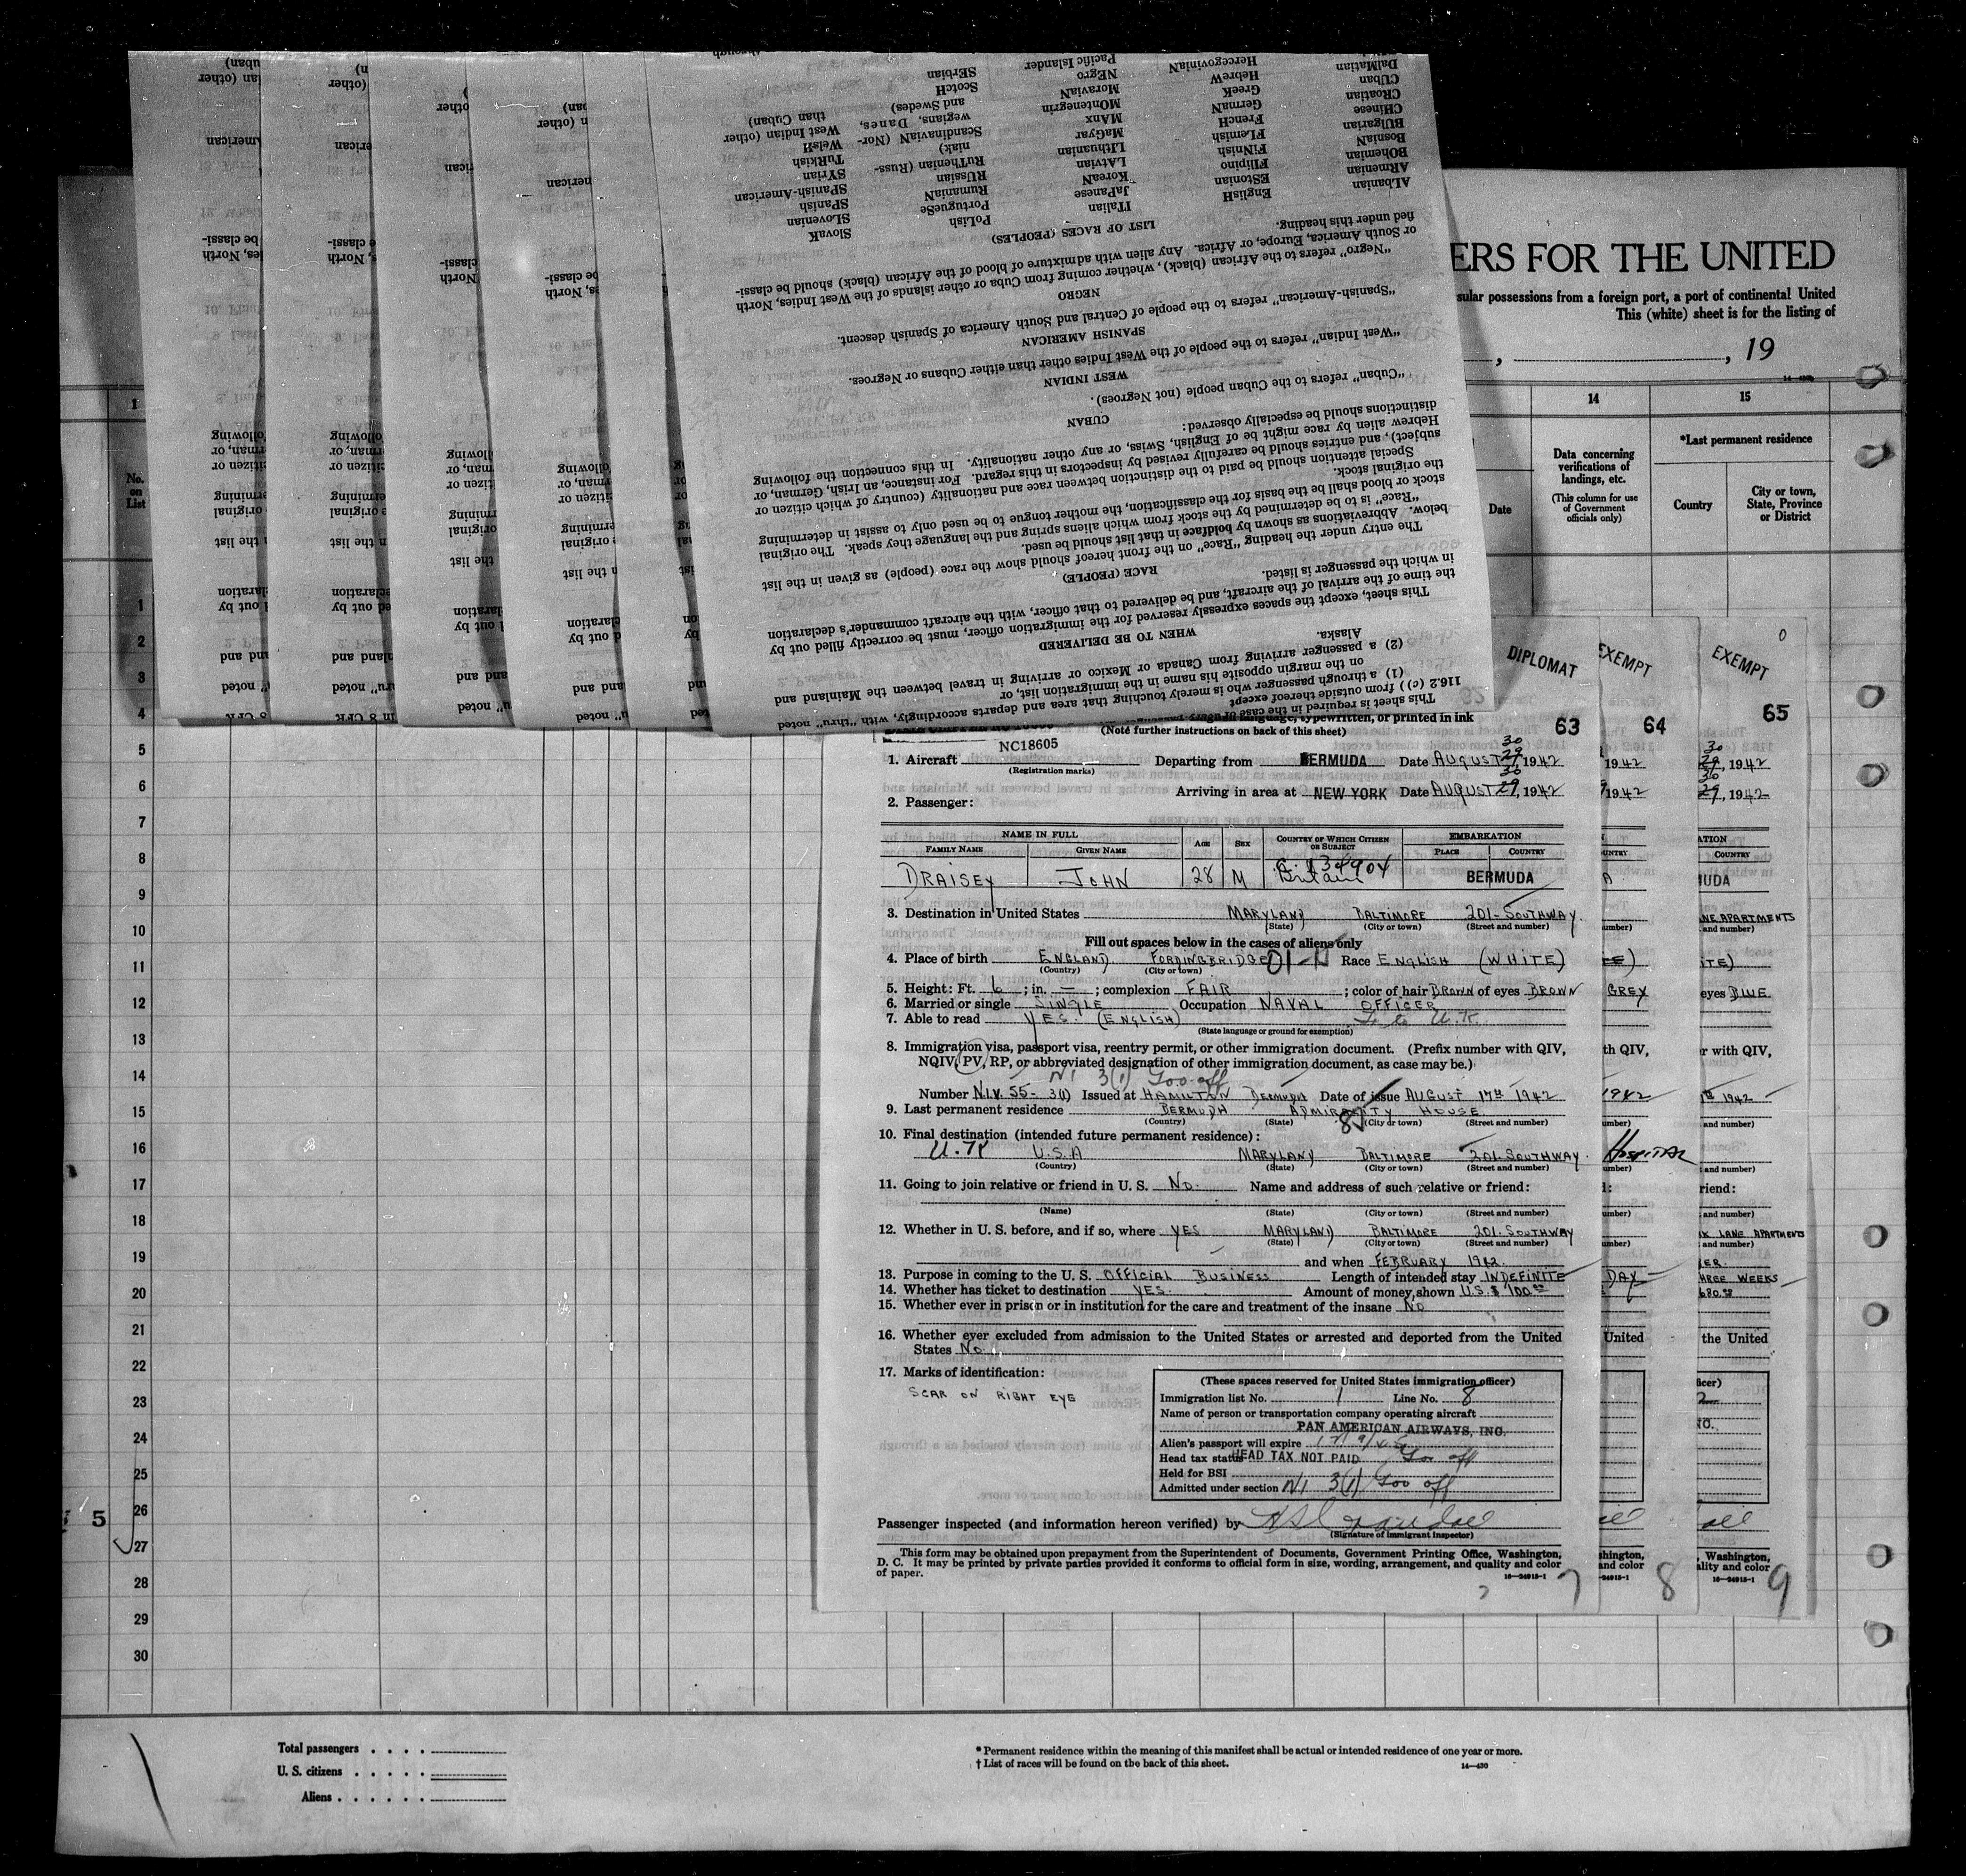 ERS FOR THE UNITED
sular possessions from a foreign port, a port of continental United
This (white) sheet is for the listing of
, 19
14
15
Data concerning
verifications of
landings, etc.
(This column for use
of Government
officials only)
*Last permanent residence
Date
Country
City or town,
State, Province
or District
No.
on
List
This sheet is required in the case of
116.2 (c)) from outside thereof except
(1) a through passenger who is merely touching that area and departs accordingly, with "thru" noted
on the margin opposite his name in the immigration list, or
(2) a passenger arriving from Canada or Mexico or arriving in travel between the Mainland and
Alaska.
WHEN TO BE DELIVERED
This sheet, except the spaces expressly reserved for the immigration officer, must be correctly filled out by
the time of the arrival of the aircraft, and be delivered to that officer, with the aircraft commander's declaration
in which the passenger is listed.
RACE (PEOPLE)
The entry under the heading "Race" on the front hereof should show the race (people) as given in the list
below. Abbreviations as shown by boldface in that list should be used.
"Race" is to be determined by the stock from which aliens spring and the language they speak. The original
stock or blood shall be the basis for the classification, the mother tongue to be used only to assist in determining
the original stock.
Special attention should be paid to the distinction between race and nationality (country of which citizen or
subject), and entries should be carefully revised by inspectors in this regard. For instance, an Irish, German, or
Hebrew alien by race might be of English, Swiss, or any other nationality. In this connection the following
distinctions should be especially observed:
CUBAN
"Cuban" refers to the Cuban people (not Negroes).
WEST INDIAN
"West Indian" refers to the people of the West Indies other than either Cubans or Negroes.
SPANISH AMERICAN
"Spanish-American" refers to the people of Central and South America of Spanish descent.
NEGRO
"Negro" refers to the African (black), whether coming from Cuba or other islands of the West Indies, North
or South America, Europe, or Africa. Any alien with admixture of blood of the African (black) should be classi-
fied under this heading.
LIST OF RACES (PEOPLES)
ALbanian EnglisH ITalian PoLish SlovaK
ARmenian EStonian JaPanese PortugueSe SLovenian
BOhemian FIlipino KoreaN RumaniaN SPanish
BosniaN FiNnish LAtvian RUssian SPanish-American
BUlgarian FLemish LIthuanian RuThenian (Russ- SYrian
CHinese FrencH MaGyar niak) TuRkish
CRoatian GermaN MAnx ScandinaviaN (Nor- WelsH
CUban GreeK MOntenegrin wegians, Danes, West Indian (other
DalMatian HebreW MoraviaN and Swedes) than Cuban)
HercegoviniaN NEgro ScotcH
Pacific Islander SErbian
DIPLOMAT
EXEMPT
EXEMPT
63
64
65
(Note further instructions on back of this sheet)
NC18605
1. Aircraft Departing from BERMUDA Date AUGUST 29, 30 1942
(Registration marks)
Arriving in area at NEW YORK Date AUGUST 29, 30 1942
2. Passenger:
NAME IN FULL
FAMILY NAME GIVEN NAME AGE SEX COUNTRY OF WHICH CITIZEN OR SUBJECT EMBARKATION
PLACE COUNTRY
DRAISEY JOHN 28 M Britain BERMUDA
3. Destination in United States MARYLAND BALTIMORE 201-SOUTHWAY.
(State) (City or town) (Street and number)
Fill out spaces below in the cases of aliens only
4. Place of birth ENGLAND FORDINGBRIDGE Race ENGLISH (WHITE)
(Country) (City or town)
5. Height: Ft. 6; in. —; complexion FAIR; color of hair BROWN of eyes BROWN
6. Married or single SINGLE Occupation NAVAL OFFICER
7. Able to read YES. (ENGLISH) to U.K.
(State language or ground for exemption)
8. Immigration visa, passport visa, reentry permit, or other immigration document. (Prefix number with QIV,
NQIV, PV, RP, or abbreviated designation of other immigration document, as case may be.)
NI 3(1) Gov off
Number N.I.V. 55- 3(1) Issued at HAMILTON BERMUDA Date of issue AUGUST 17th 1942
9. Last permanent residence BERMUDA ADMIRALTY HOUSE
(Country) (State) (City or town) (Street and number)
10. Final destination (intended future permanent residence):
U.K U.S.A MARYLAND BALTIMORE 201-SOUTHWAY.
(Country) (State) (City or town) (Street and number)
11. Going to join relative or friend in U. S. No. Name and address of such relative or friend:
(Name) (State) (City or town) (Street and number)
12. Whether in U. S. before, and if so, where YES MARYLAND BALTIMORE 201-SOUTHWAY
(State) (City or town) (Street and number)
and when FEBRUARY 1942.
13. Purpose in coming to the U. S. OFFICIAL BUSINESS Length of intended stay INDEFINITE
14. Whether has ticket to destination YES. Amount of money shown U.S. $ 100.00
15. Whether ever in prison or in institution for the care and treatment of the insane No
16. Whether ever excluded from admission to the United States or arrested and deported from the United
States No.
17. Marks of identification:
SCAR ON RIGHT EYE
(These spaces reserved for United States immigration officer)
Immigration list No. 1 Line No. 8
Name of person or transportation company operating aircraft
PAN AMERICAN AIRWAYS, INC.
Alien's passport will expire
Head tax status HEAD TAX NOT PAID Gov off
Held for BSI
Admitted under section NI 3(1) Gov off
Passenger inspected (and information hereon verified) by
(Signature of immigrant inspector)
This form may be obtained upon prepayment from the Superintendent of Documents, Government Printing Office, Washington,
D. C. It may be printed by private parties provided it conforms to official form in size, wording, arrangement, and quality and color
of paper.
16—24915-1
7
8
9
HOSPITAL
GREY
eyes BLUE
DAY
THREE WEEKS
1
2
3
4
5
6
7
8
9
10
11
12
13
14
15
16
17
18
19
20
21
22
23
24
25
26
27
28
29
30
5
Total passengers
U. S. citizens
Aliens
* Permanent residence within the meaning of this manifest shall be actual or intended residence of one year or more.
† List of races will be found on the back of this sheet.
14—430